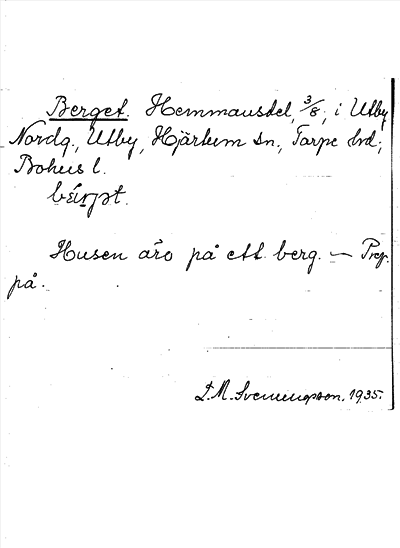 Berget. Hemmansdel, 3/8, i Utby
Nordg., Utby, Hjärtum sn., Torpe hd.,
Bohus l.
Husen äro på ett berg. — Prep.
på.
Svenungsson. 1935.